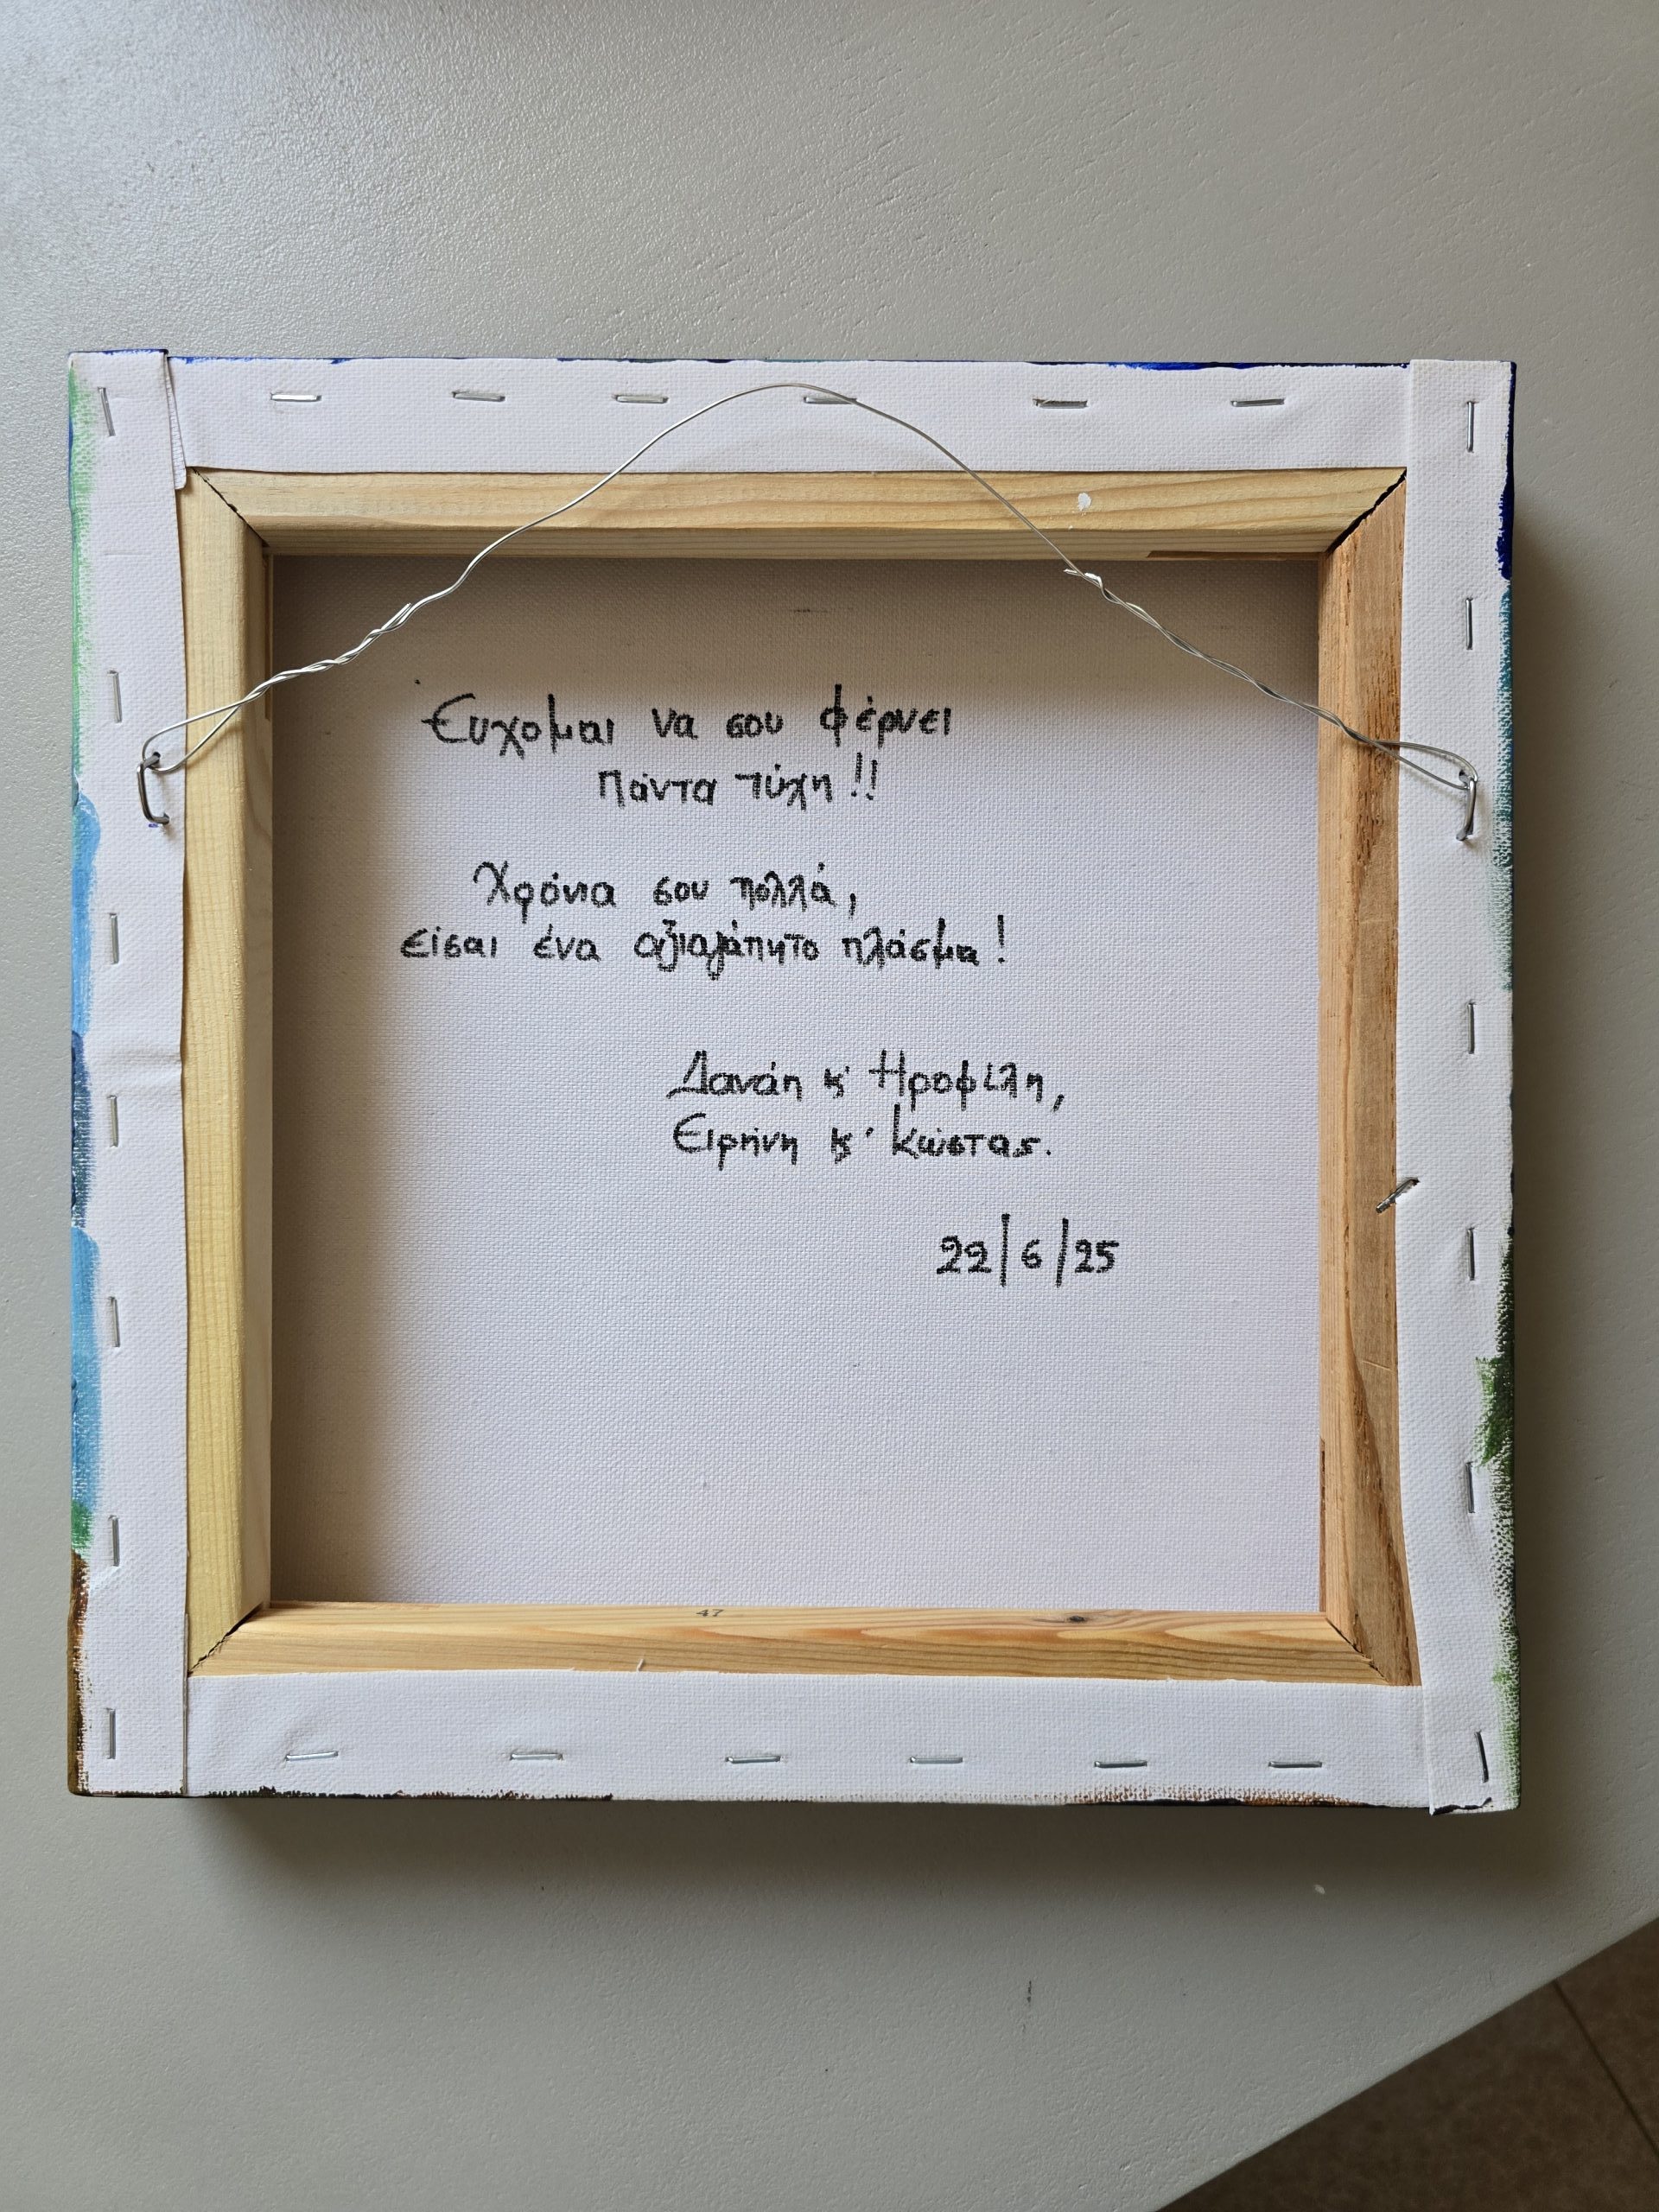 Εύχομαι να σου φέρνει
πάντα τύχη!!
Χρόνια σου πολλά,
είσαι ένα αξιαγάπητο πλάσμα!
Δανάη κ' Ηροφίλη,
Ειρήνη κ' Κώστας.
22/6/25
47